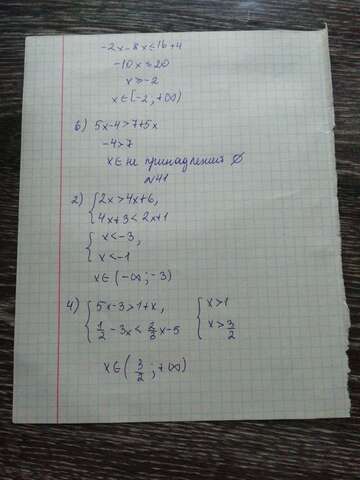 -2x-8x≤16+4
-10x≤20
x≥-2
x∈[-2;+∞)
6) 5x-4>7+5x
-4>7
x∈ не принадлежий ∅
№41
2) {2x>4x+6,
4x+3<2x+1
{x<-3,
x<-1
x∈(-∞;-3)
4) {5x-3>1+x, {x>1
1/2-3x<2/3x-5 x>3/2
x∈(3/2;+∞)